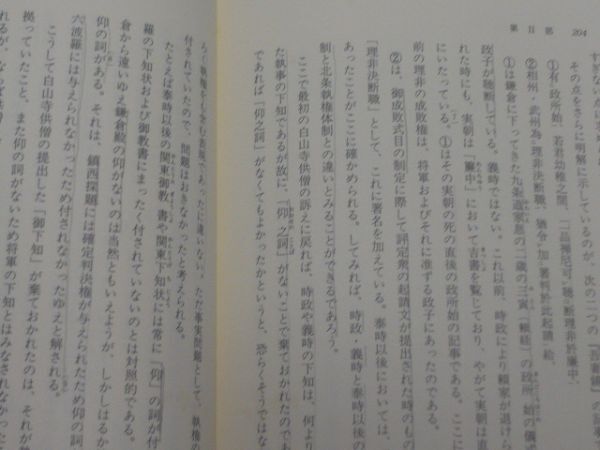 204
第Ⅱ部
その点をさらに明解に示しているのが、次の二つの『吾妻鏡』の記事で
①有政所始、若君幼稚之間、二品禅尼可聴断理非於簾中、
②相州、武州為理非決断職、猶令加署判於此起請給、
①は鎌倉に下ってきた九条道家息の二歳の三寅(頼経)の政所始の儀式
政子が聴断している。義時ではない。これ以前、時政により頼家が退けら
れた時にも、実朝は「簾中」において吉書を覧じており、やがて実朝は直
にいたっている。①はその実朝の死の直後の政所始の記事である。ここに
前の理非の成敗権は、将軍およびそれに准ずる政子にあったことが
②は、御成敗式目の制定に際して評定衆の起請文が提出された時のもの
「理非決断職」として、これに署名を加えている。泰時以後においては、
あったことがここに確かめられる。してみれば、時政・義時と泰時以後の
制と北条執権体制との違いとみることができるであろう。
ここで最初の白山寺供僧の訴えに戻れば、時政や義時の下知は、何より
た執事の下知であるが故に、「仰之詞」がないことで棄ておかれたのであ
であれば「仰之詞」がなくてもよかったかというと、恐らくそうではな
ろく執権をも含む
ていたので、問題はおきなかったと考えられる。
たとえば泰時以後の関東御教書や関東下知状には常に「仰」の詞が付
羅の下知状および御教書にまったく付されていないのとは対照的である。
倉から遠いゆえ鎌倉殿の仰がないのは当然ともいえようが、しかしはるか
仰の詞がある。それは、鎮西探題には確定判決権が与えられたため仰の詞
六波羅には与えられなかったため付されなかったゆえと解される。
こうして白山寺供僧の提出した「御下知」が棄ておかれたのは、それが
拠っていたこと、また仰の詞がないため将軍の下知とはみなされなかった